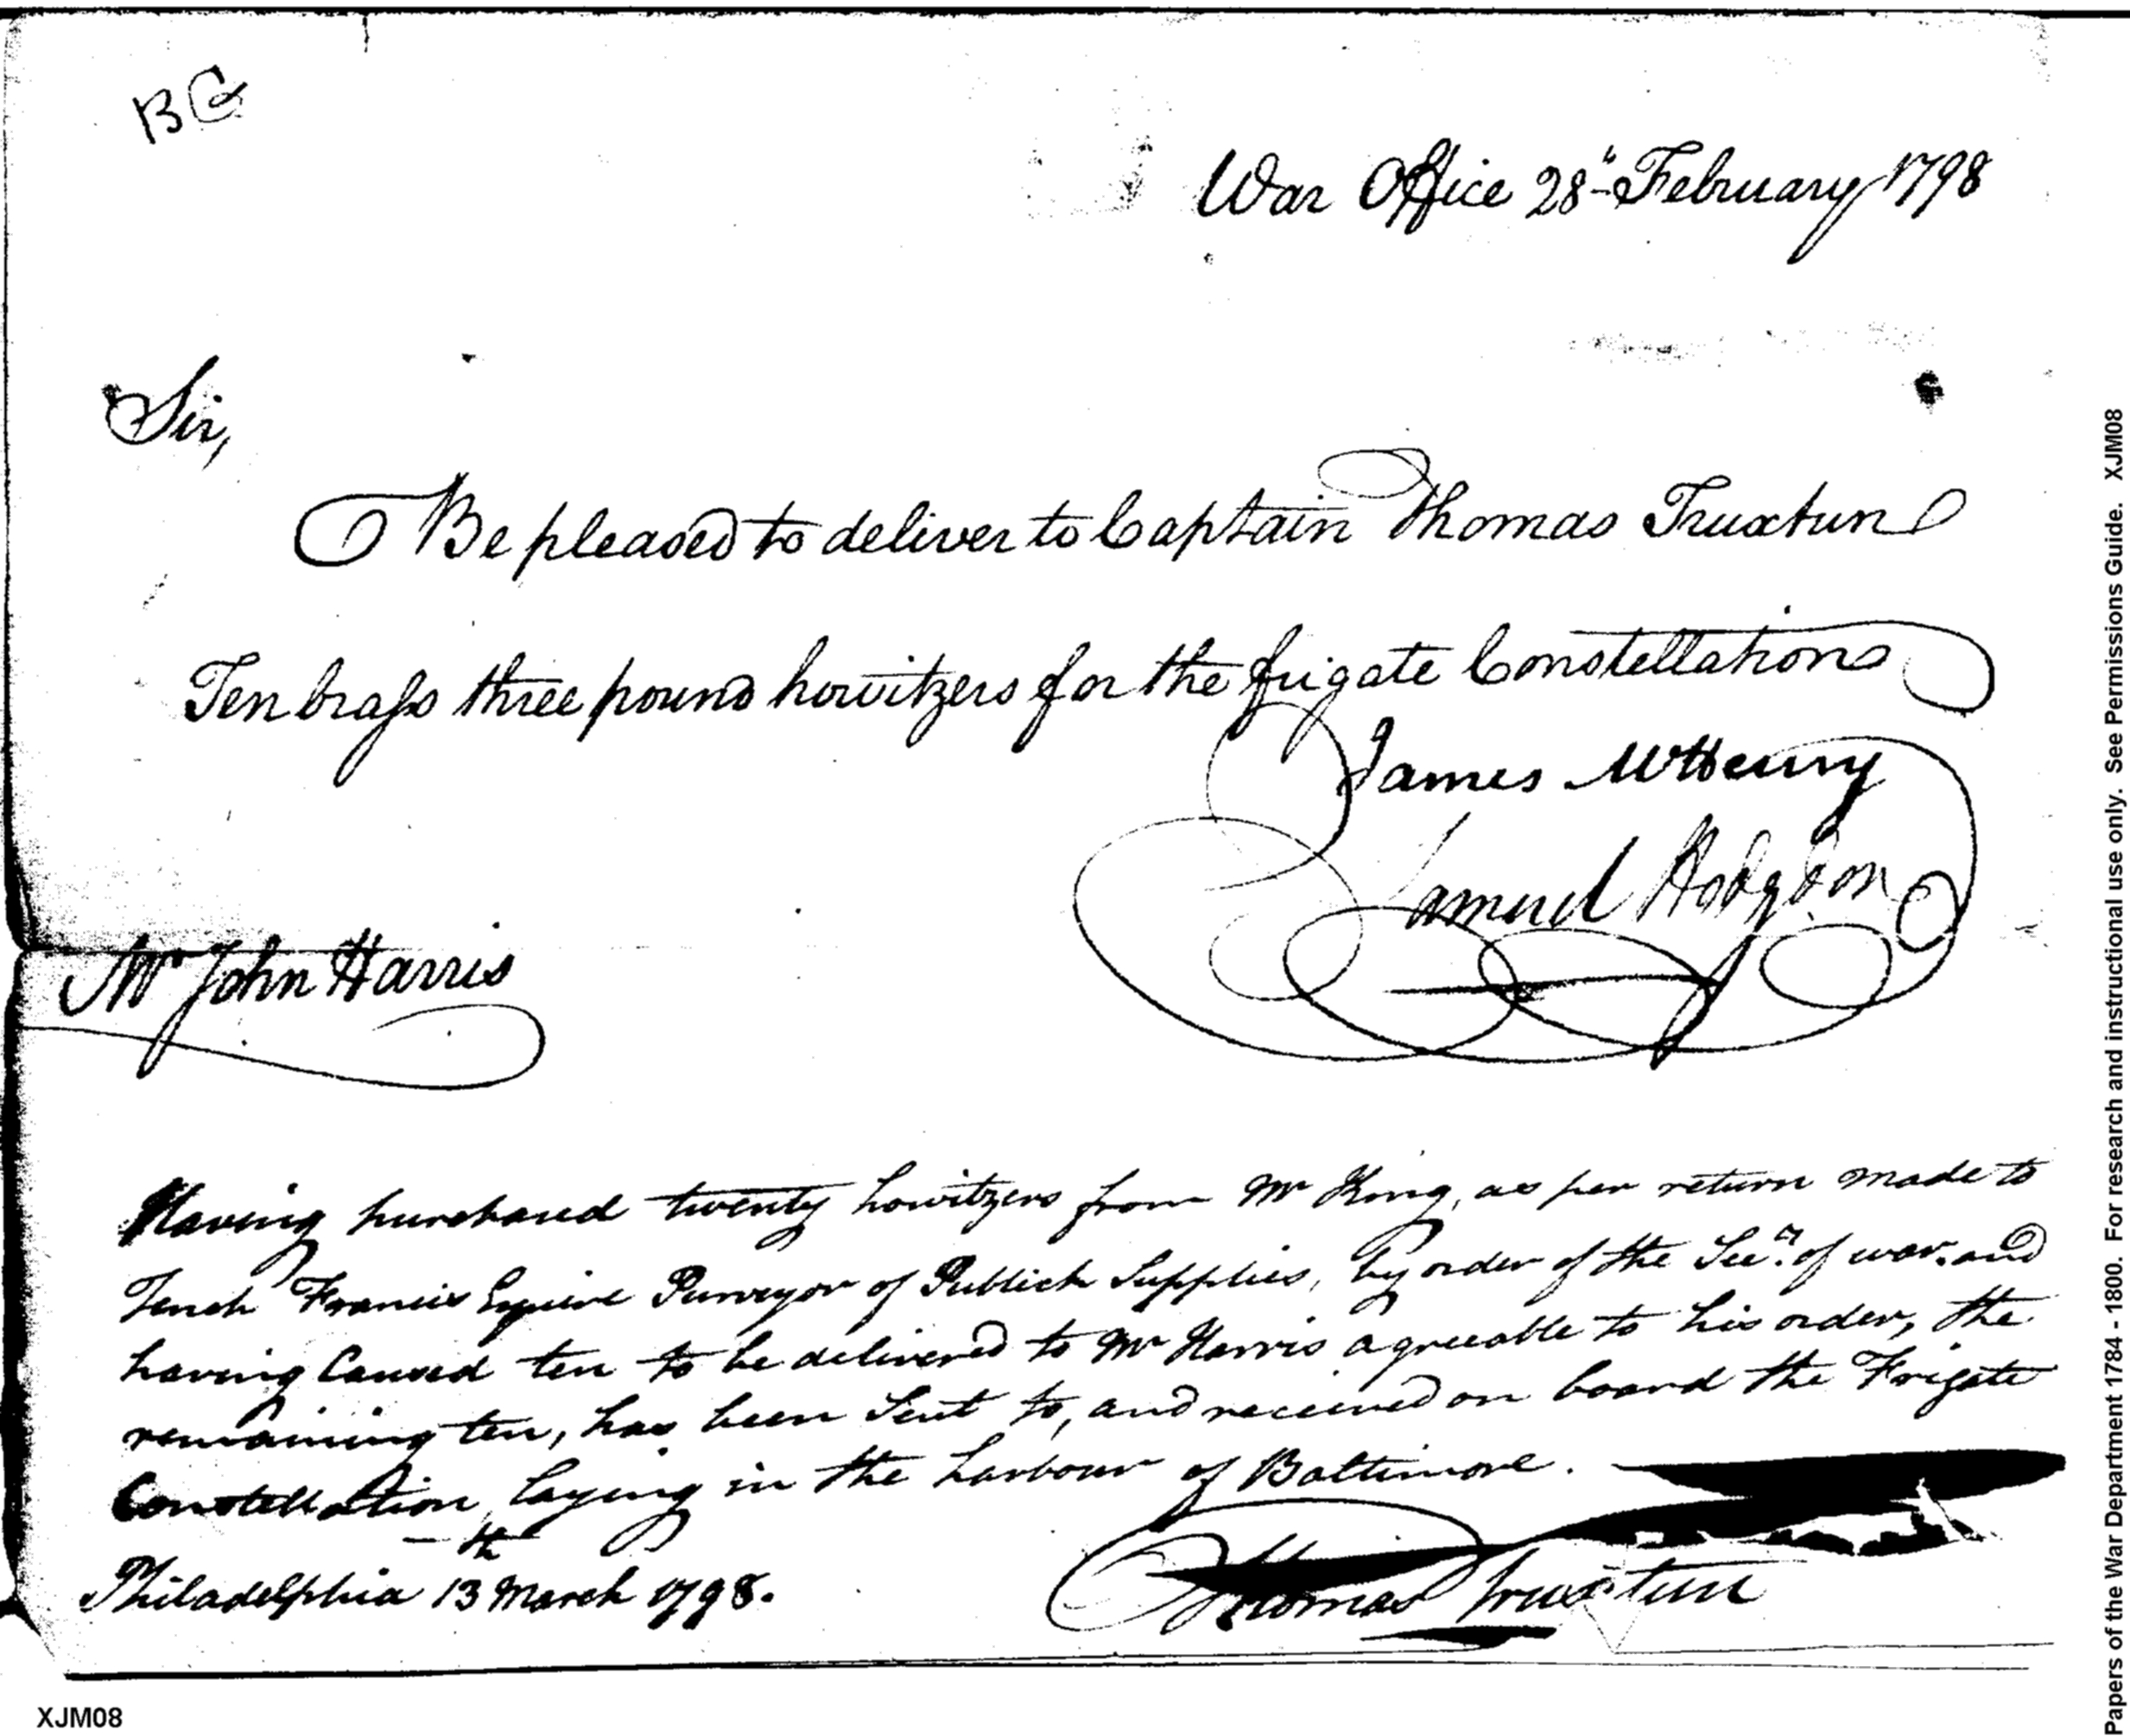 BG
War Office 28th February 1798
Sir,
Be pleased to deliver to Captain Thomas Truxtun
Ten brass three pound howitzers for the frigate Constellation
James McHenry
Samuel Hodgdon
Mr John Harris
Having purchased twenty howitzers from Mr King, as per return made to
Tench Francis Esquire Purveyor of Publick Supplies, by order of the Secy. of war. and
having Caused ten to be delivered to Mr Harris agreeable to his order, the
remaining ten, has been Sent to, and received on board the Frigate
Constellation, laying in the harbour of Baltimore.
Philadelphia 13th March 1798.
Thomas Truxtun
XJM08
Papers of the War Department 1784 - 1800. For research and instructional use only. See Permissions Guide. XJM08